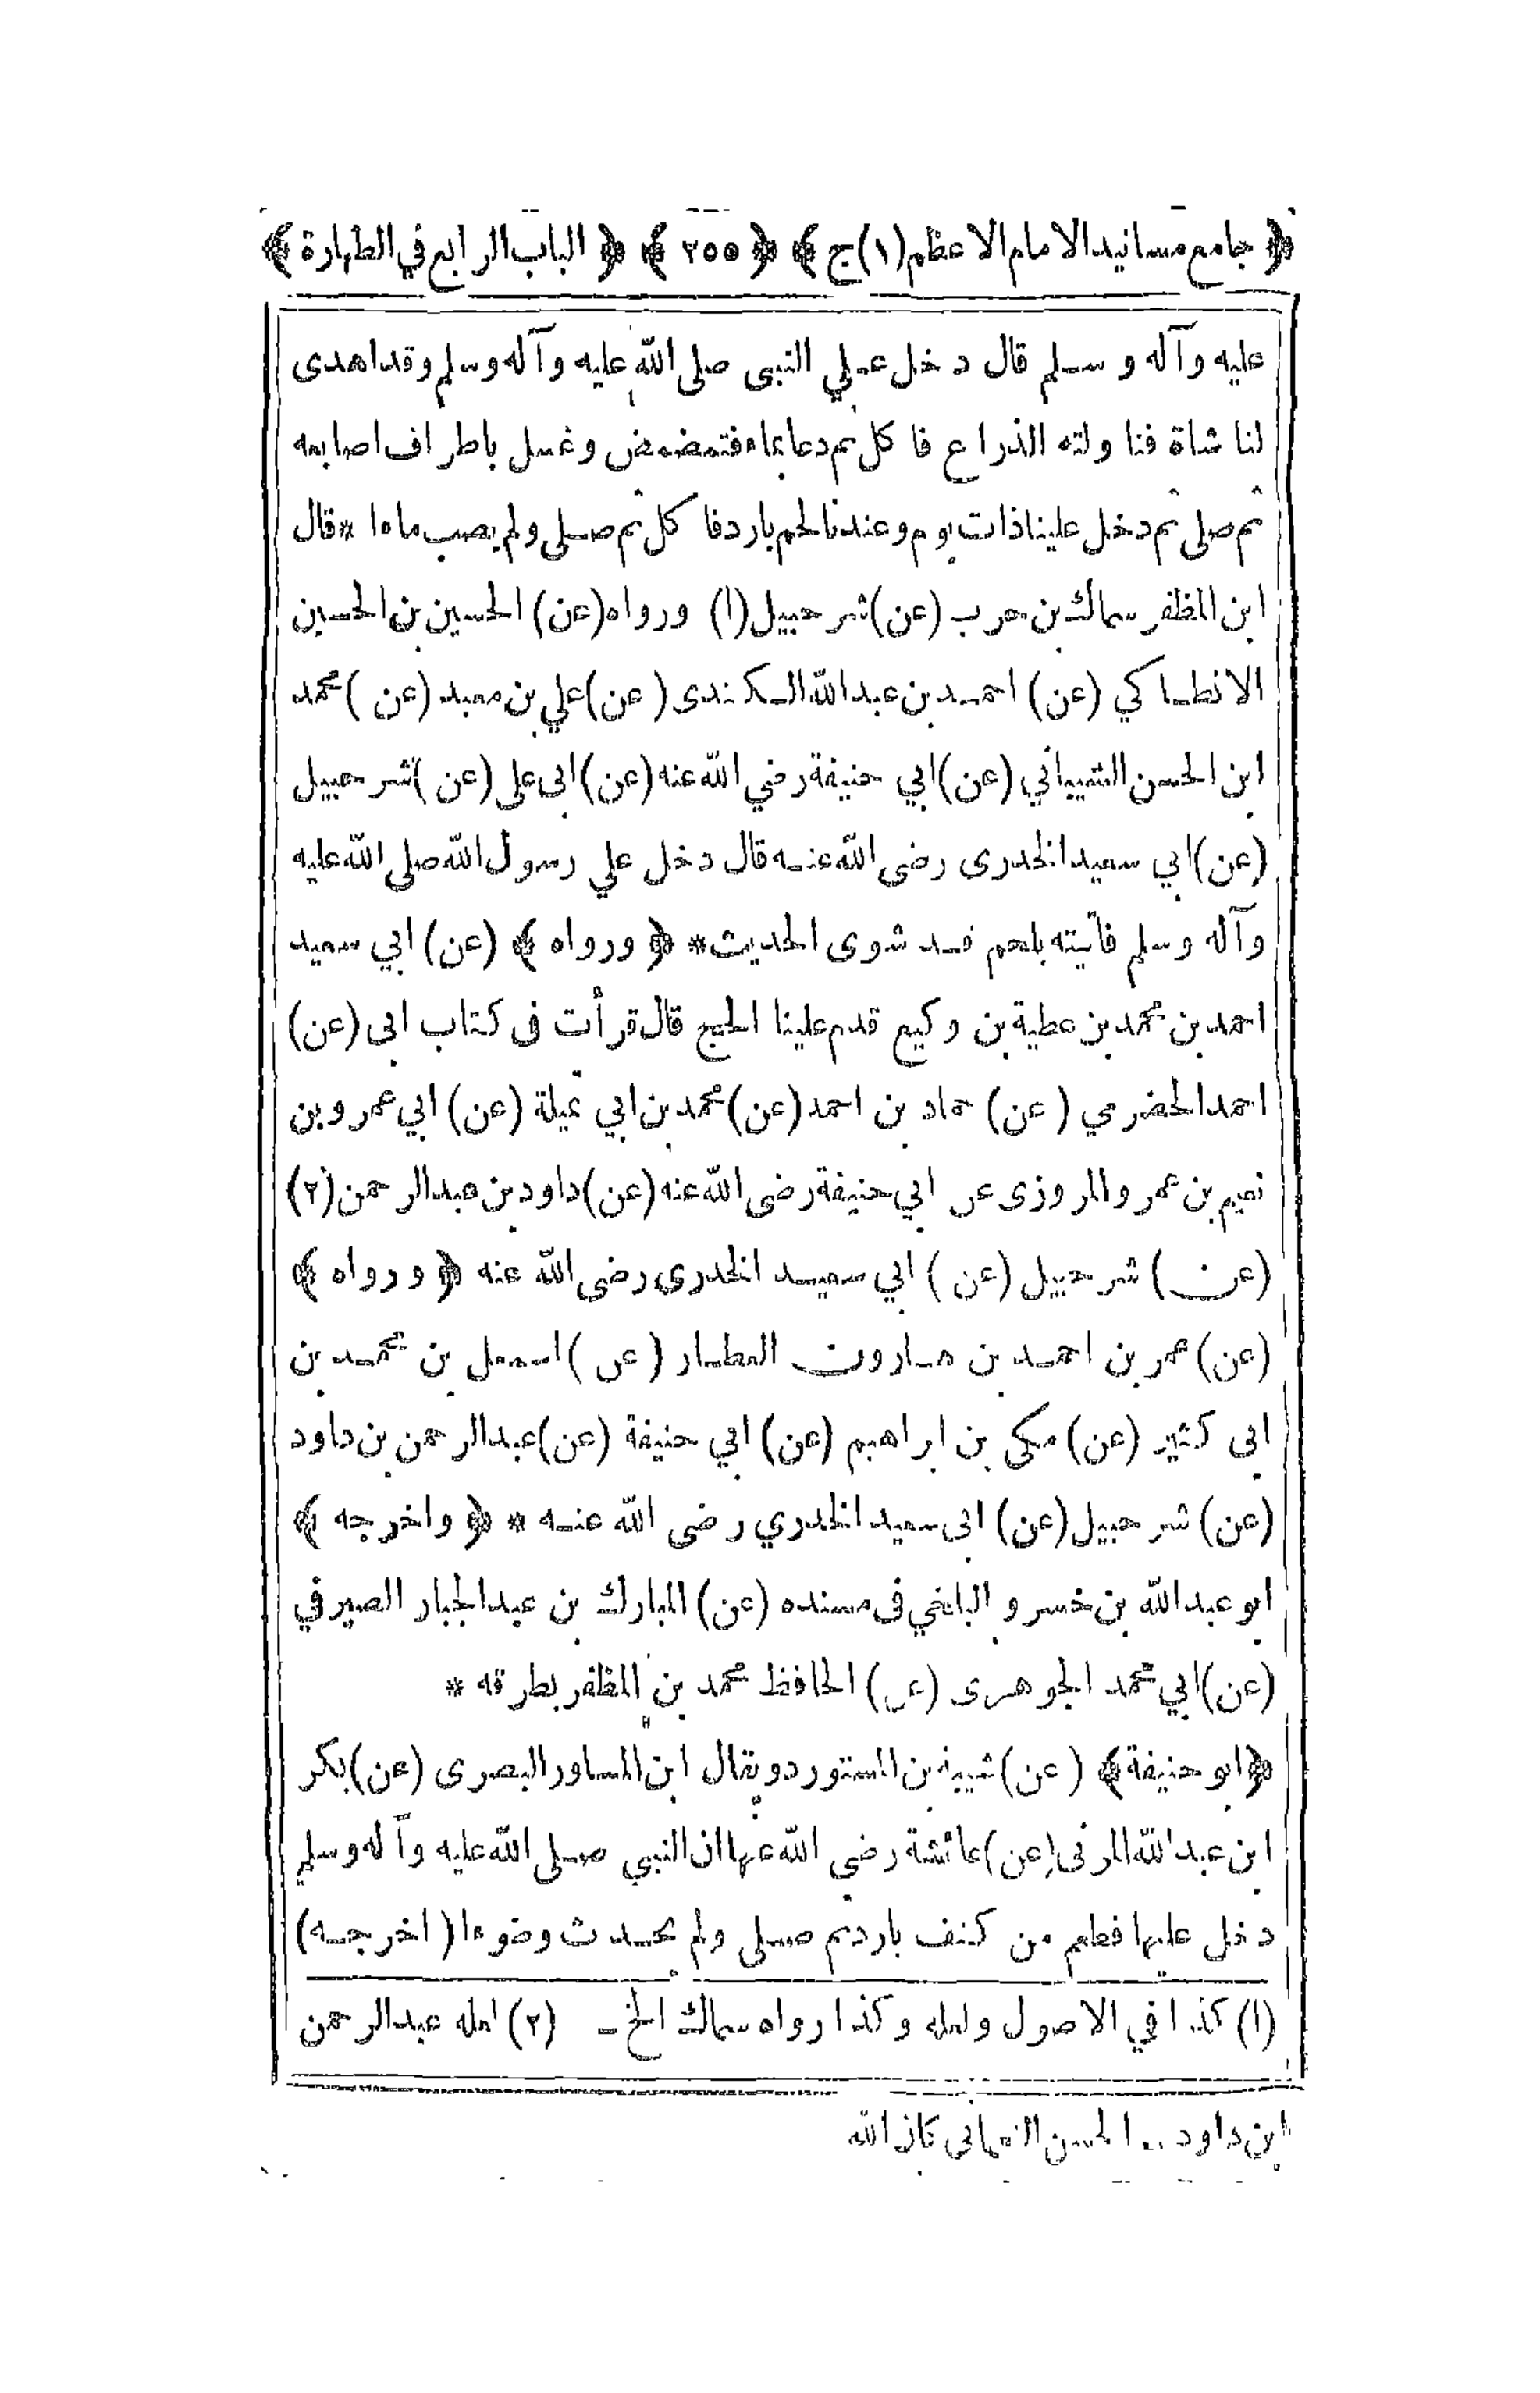 ﴿ جامع مسانيد الامام الاعظم (١) ج ﴾ ﴿ ٢٥٥ ﴾ ﴿ الباب الرابع في الطهارة ﴾
عليه وآله وسلم قال دخل علي النبى صلى الله عليه وآله وسلم وقد اهدى
لنا شاة فناولته الذراع فاكل ثم دعا بماء فتمضمض وغسل باطراف اصابعه
ثم صلى ثم دخل علينا ذات يوم وعندنا لحم بارد فاكل ثم صلى ولم يصب ماءا * قال
ابن المظفر سماك بن حرب (عن) شرحبيل (١) ورواه (عن) الحسين بن الحسين
الانطاكي (عن) احمد بن عبد الله الكندى (عن) علي بن معبد (عن) محمد
ابن الحسن الشيباني (عن) ابي حنيفة رضي الله عنه (عن) ابى على (عن) شرحبيل
(عن) ابي سعيد الخدرى رضى الله عنه قال دخل علي رسول الله صلى الله عليه
وآله وسلم فاتيته بلحم قد شوى الحديث * ﴿ ورواه ﴾ (عن) ابي سعيد
احمد بن محمد بن عطية بن وكيع قدم علينا الحج قال قرأت فى كتاب ابى (عن)
احمد الحضرمي (عن) حماد بن احمد (عن) محمد بن ابي غيلة (عن) ابي عمرو بن
نعيم بن عمرو المروزى عن ابي حنيفة رضى الله عنه (عن) داود بن عبد الرحمن (٢)
(عن) شرحبيل (عن) ابي سعيد الخدرى رضى الله عنه ﴿ ورواه ﴾
(عن) عمر بن احمد بن هارون العطار (عن) اسمعل بن محمد بن
ابى كثير (عن) مكى بن ابراهيم (عن) ابي حنيفة (عن) عبد الرحمن بن داود
(عن) شرحبيل (عن) ابى سعيد الخدري رضى الله عنه * ﴿ واخرجه ﴾
ابو عبد الله بن خسرو البلخي فى مسنده (عن) المبارك بن عبد الجبار الصيرفي
(عن) ابي محمد الجوهرى (عن) الحافظ محمد بن المظفر بطرقه *
﴿ ابو حنيفة ﴾ (عن) شيبة بن المستورد ويقال ابن المساور البصرى (عن) بكر
ابن عبد الله المزنى (عن) عائشة رضي الله عنها ان النبي صلى الله عليه وآله وسلم
دخل عليها فطعم من كتف بارد ثم صلى ولم يحدث وضوءا (اخرجه)
(١) كذا في الاصول ولعله وكذا رواه سماك الخ ـ (٢) لعله عبد الرحمن
ابن داود .. الحسن النعمانى كان الله